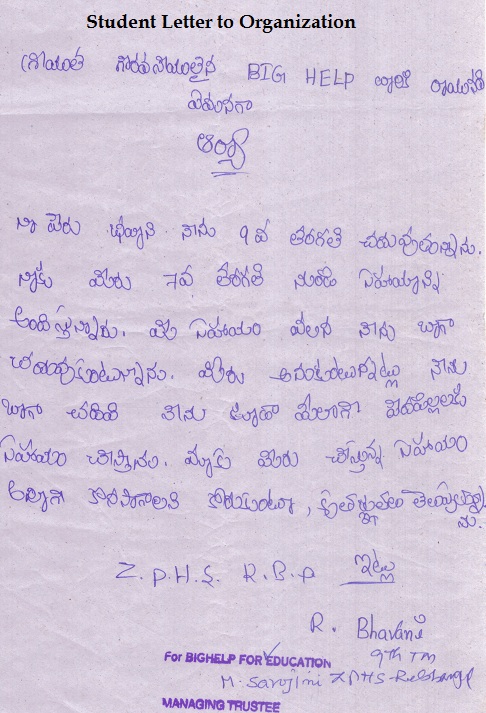 Student Letter to Organization
గౌరవనీయులైన BIG HELP వారికి రాయునది
ఏమనగా
ఆర్యా
నా పేరు భవాని నాను 9 వ తరగతి చదువుతున్నాను.
నాకు మీరు 7వ తరగతి నుండి సహాయాన్ని
అందిస్తున్నారు. మీ సహాయం వలన నాను బాగా
చదువుకుంటున్నాను. మీరు అనుకుంటున్నట్లు నాను
బాగా చదివి నాను కూడా మీలాగా పేదపిల్లలకు
సహాయం చేస్తాను. మాకు మీరు చేస్తున్న సహాయం
అలాగే కొనసాగాలని కోరుకుంటూ, కృతజ్ఞతలు తెలుపుతున్నా
ను.
Z.P.H.S. R.B.P ఇట్లు
R. Bhavani
9th TM
For BIGHELP FOR EDUCATION
M. Sarojini ZPHS-
MANAGING TRUSTEE